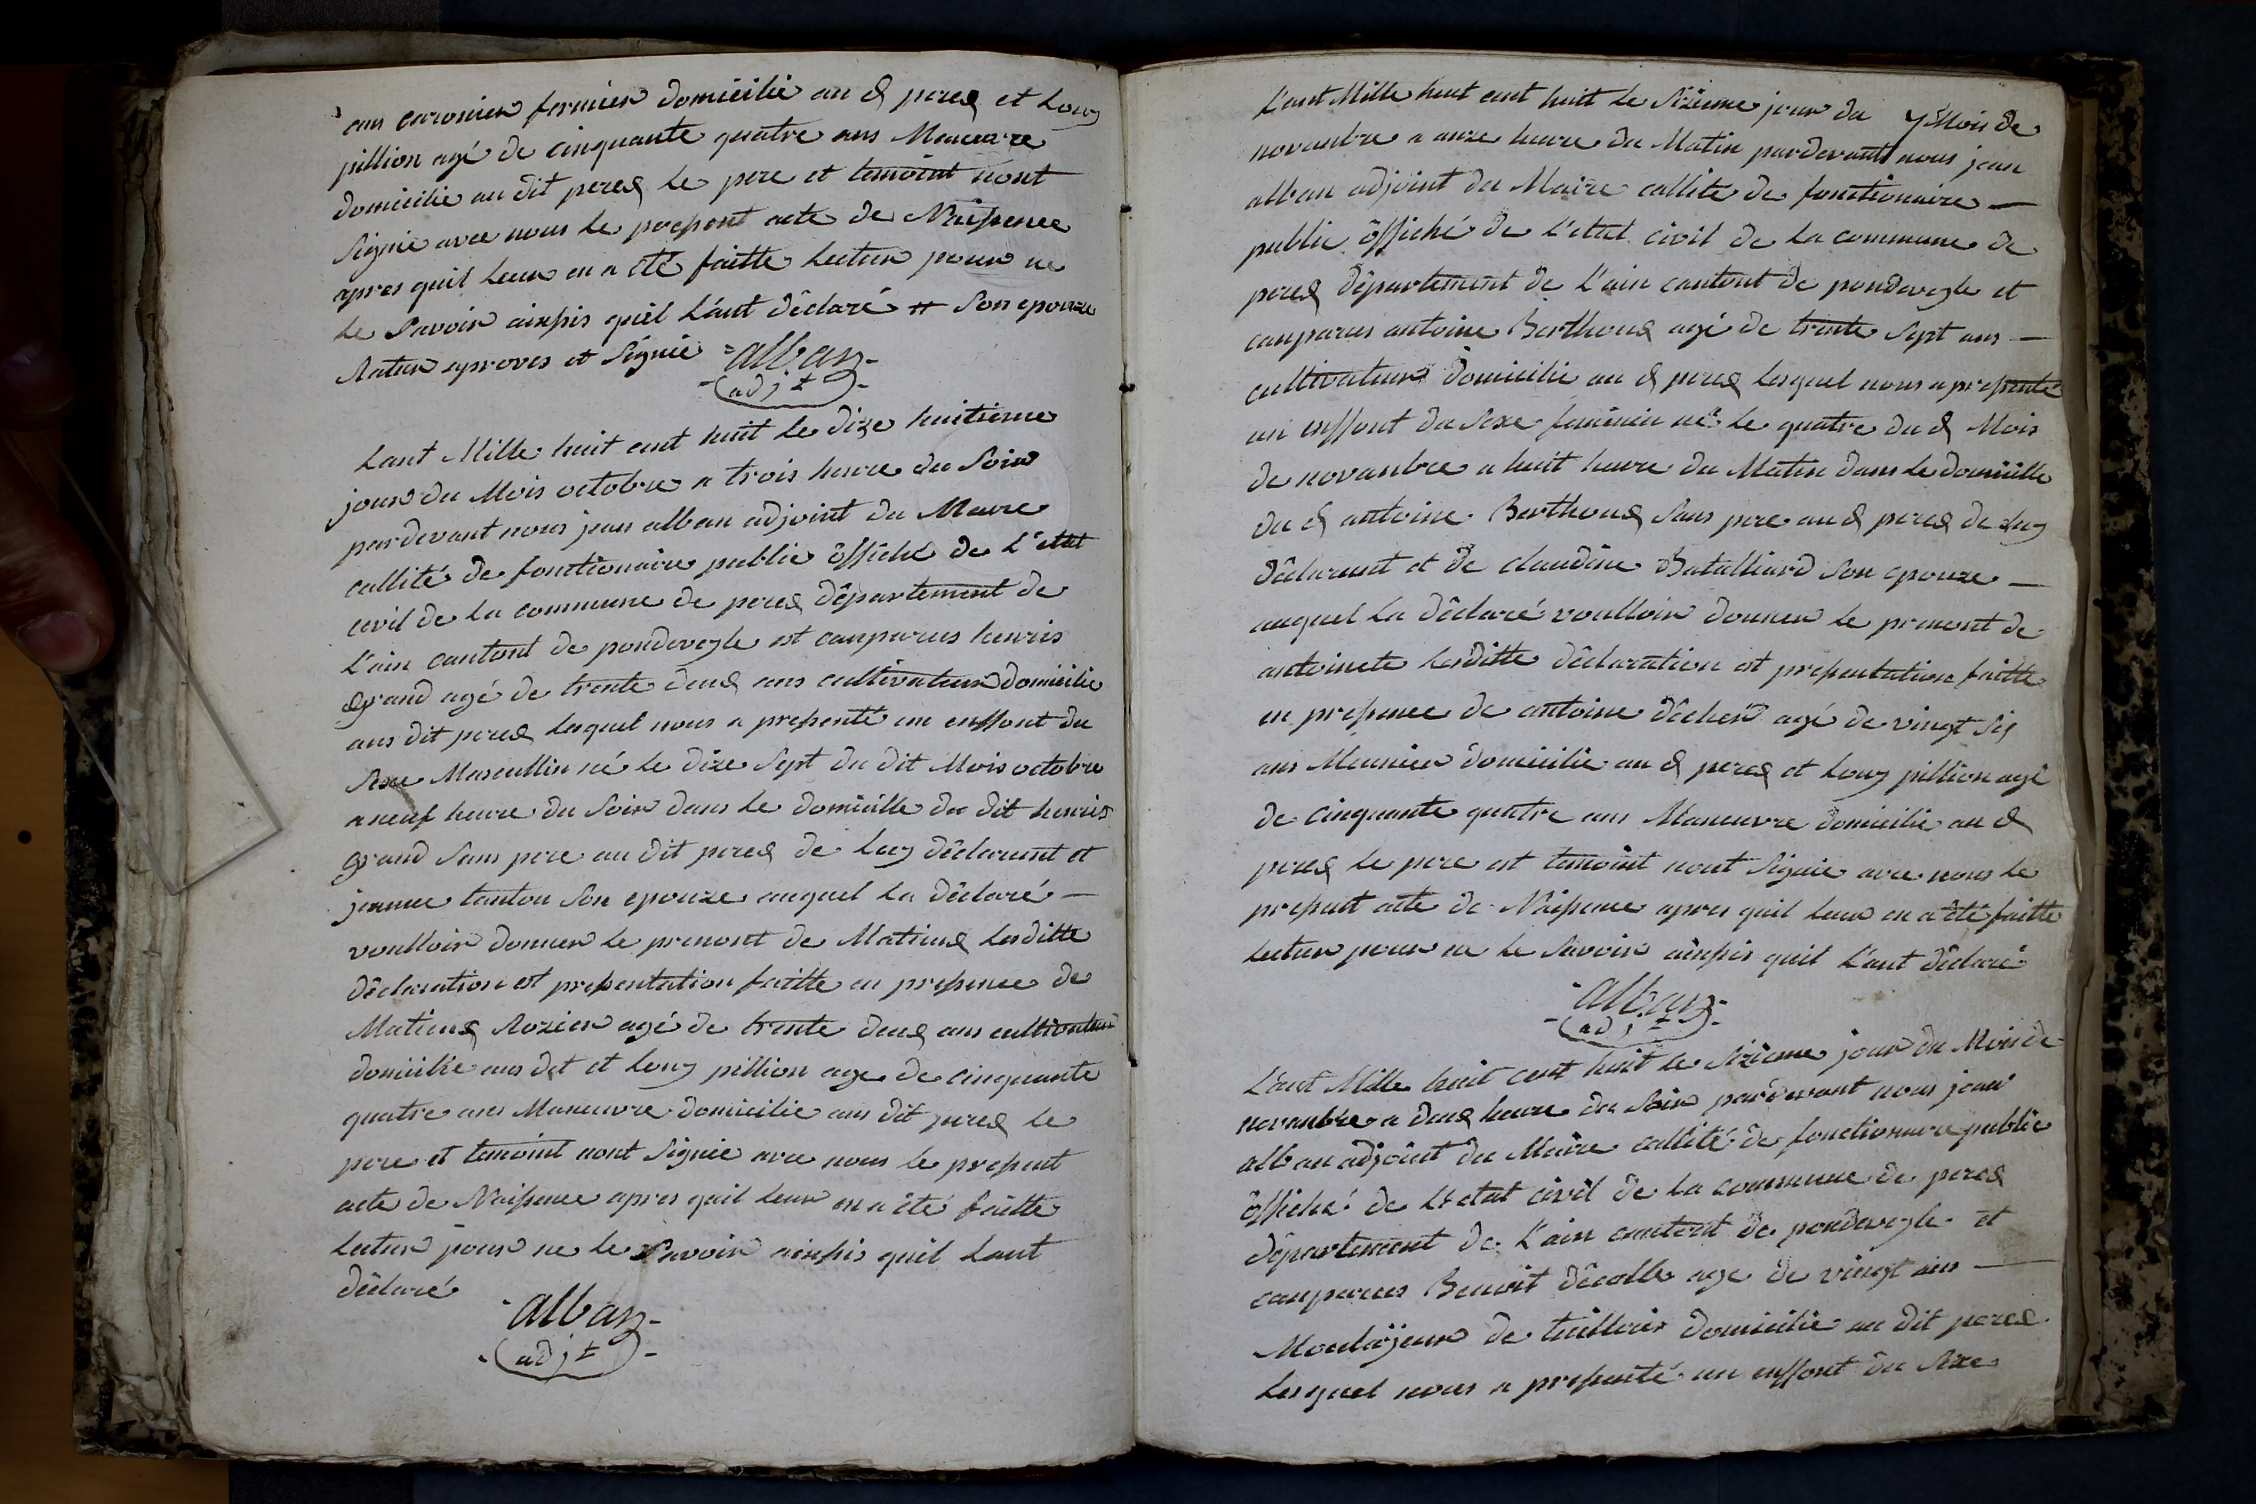 ans caronier fermier domicilie au d perex et Louy
pillion agé de cinquante quatre ans Maneuvre
domicilie au dit perex le pere et temoint nont
Signie avec nous le present acte de Naissence
apres quil leur en a été faitte lectur pour ne
le Savoir ainssis quil L'ant dêclaré # Son epouze
Ratur eproves et Signie alban
adjt
Lant Mille huit cent huit le dize huitieme
jour du Mois octobre a trois heure du Soir
pardevant nous jean alban adjoint du Maire
callité de fonctionaire public ôffiché de L'etat
civil de la commune de perex dêpartement de
L'ain cantont de pondevegle est conparus henris
Grand agé de trente deux ans cultivateur domicilie
aus dit perex lesquel nous a pressenté un enffont du
Sexe Mascullin né le dize Sept du dit Mois octobre
a neuf heure du Soir dans le domicille du dit henris
Grand Sans pere au dit perex de Luy dêclarent et
jeanne tonton Son epouze auquel la dêclaré —
voulloir donner le prenont de Matieux lesditte
dêclaration et pressentation faitte en pressence de
Matieux Rozier agé de trente deux ans cultivateur
domicilie aus dit et Louy pillion age de cinquante
quatre ans Maneuvre domicilie aus dit perex le
pere et temoint nont Signie avec nous le pressent
acte de Naissence apres quil leur en a été faitte
lectur pour ne le Savoir ainssis quil Lant
dêclaré
alban
adjt
L'ant Mille huit cent huit le Sizieme jour du Mois de
novanbre a onze heure du Matin pardevant nous jean
alban adjoint du Maire callité de fonctionaire —
public ôffiché de L'etat civil de la commune de
perex dêpartement de L'ain cantont de pondevegle et
conparus antoine Berthoux agé de trente Sept ans —
cultivateur domicilie au d perex lesquel nous a pressenté
un enffont du Sexe feminin né le quatre du d Mois
de novanbre a huit heure du Matin dans le domicille
du d antoine Berthoux Sans pere au d perex de Luy
dêclarent et de claudine Batalliard Son epouze —
auquel la dêclaré voulloir donner le prenont de
antoinete lesditte dêclaration et pressentation faitte
en pressence de antoine dêcher agé de vingt Six
ans Meunier domicilie au d perex et Louy pillion agé
de cinquante quatre ans Maneuvre domicilie au d
perex le pere et temoint nont Signie avec nous le
pressent acte de Naissence apres quil leur en a êté faitte
lectur pour ne le Savoir ainssis quil L'ant dêclaré
alban
adjt
L'ant Mille huit cent huit le Sizieme jour du Mois de
novanbre a deux heure du Soir pardevant nous jean
alban adjoint du Maire callité de fonctionaire public
ôffiché de L'etat civil de la commune de perex
dêpartement de L'ain cantont de pondevegle et
conparus Benoit dêcolle age de vingt ans —
de domicilie au dit perex
lesquel nous a pressenté un enffont du Sexe